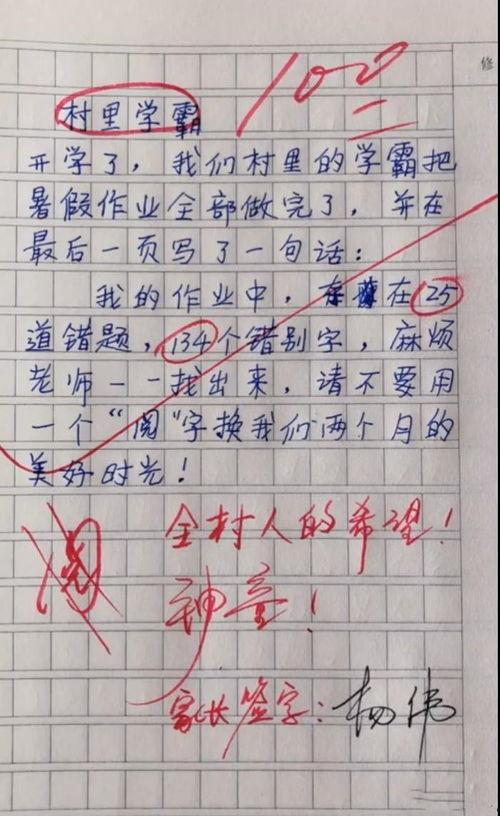 100
修
村里学霸
开学了，我们村里的学霸把
暑假作业全部做完了，并在
最后一页写了一句话：
我的作业中，存在25
道错题，134个错别字，麻烦
老师一一找出来，请不要用
一个“阅”字换我们两个月的
美好时光！
阅
全村人的希望！
神童！
家长签字：杨伟